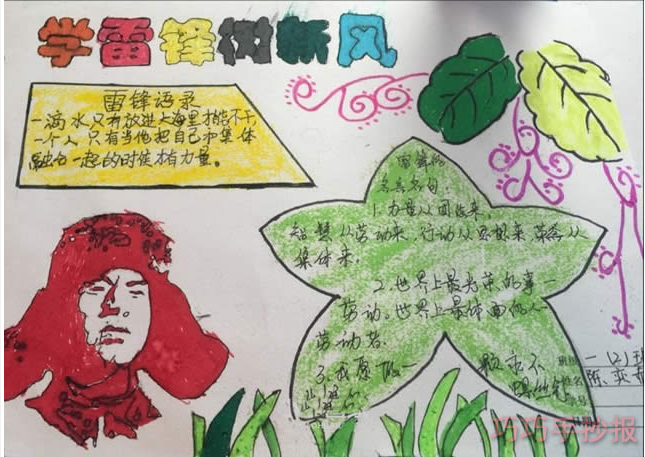 学雷锋树新风
雷锋语录
一滴水只有放进大海里才能不干,
一个人只有当他把自己和集体
融合一起的时候才有力量。
雷锋的
名言名句:
1.力量从团结来,
智慧从劳动来,行动从思想来,荣誉从
集体来。
2.世界上最光荣的事—
劳动。世界上最体面的人—
劳动者。
3.我愿做一
颗永不
螺丝钉
班级
一(2)班
姓名
陈奕
巧巧手抄报